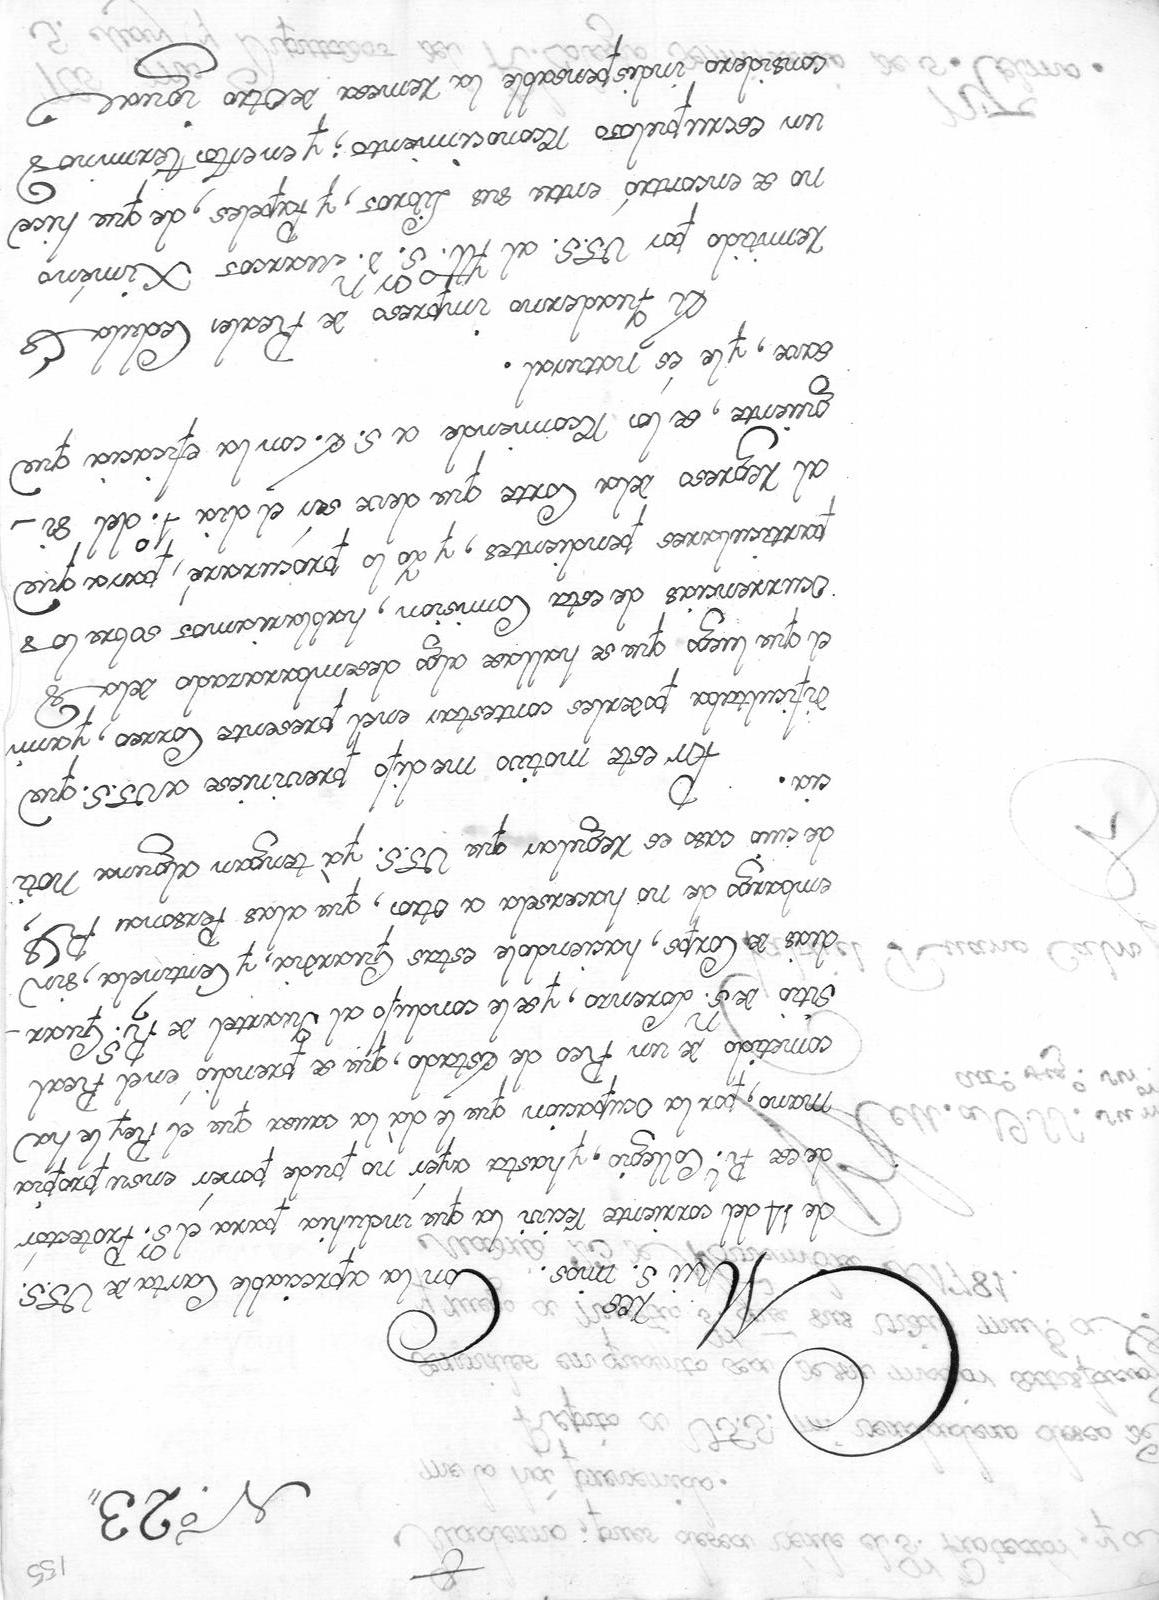 155
N.º 23,,
Mui S.res mios.
Con la apreciable Carta de VSS.
de 14 del corriente recivi la que indultria para el S.or Protector
de ese R.l Collegio, y hasta ayér no pude ponér en su propria
mano, por la ocupacion que le dà la causa que el Rey le ha
cometido de un Reo de Estado, que se prendió en el Real
Sitio de S.n Lorenzo, y se le condujo al Quartel de R.s Guar-
dias de Corps, haciendole estas Guardia, y Centinela, sin
embargo de no hacersela a otro, que alas Personas R.s,
de cuio caso es regular que VSS. yà tengan alguna noti
cia.
Por este motivo me dijo previniese a VSS. que
dificultaba poderles contestar en el presente Correo, y a mi
el que luego que se hallase algo desembarazado dela
ocurrencias de esta Comision, hablariamos sobre los
particulares pendientes, y yo lo procuraré, para que
al regreso dela Corte que deve ser él dia 1.º del Si-
guiente, se los recomiende a S.E. con la eficacia que
save, y le és natural.
El Quaderno impreso de Reales Cedulas
remitido por VSS. al Ill.mo S.or D.n Marcos Ximéno
no se encontró entre sus Libros, y Papeles, de que hice
un escrupuloso reconocimiento; y en estos terminos
considero indispensable la remesa de otro igual